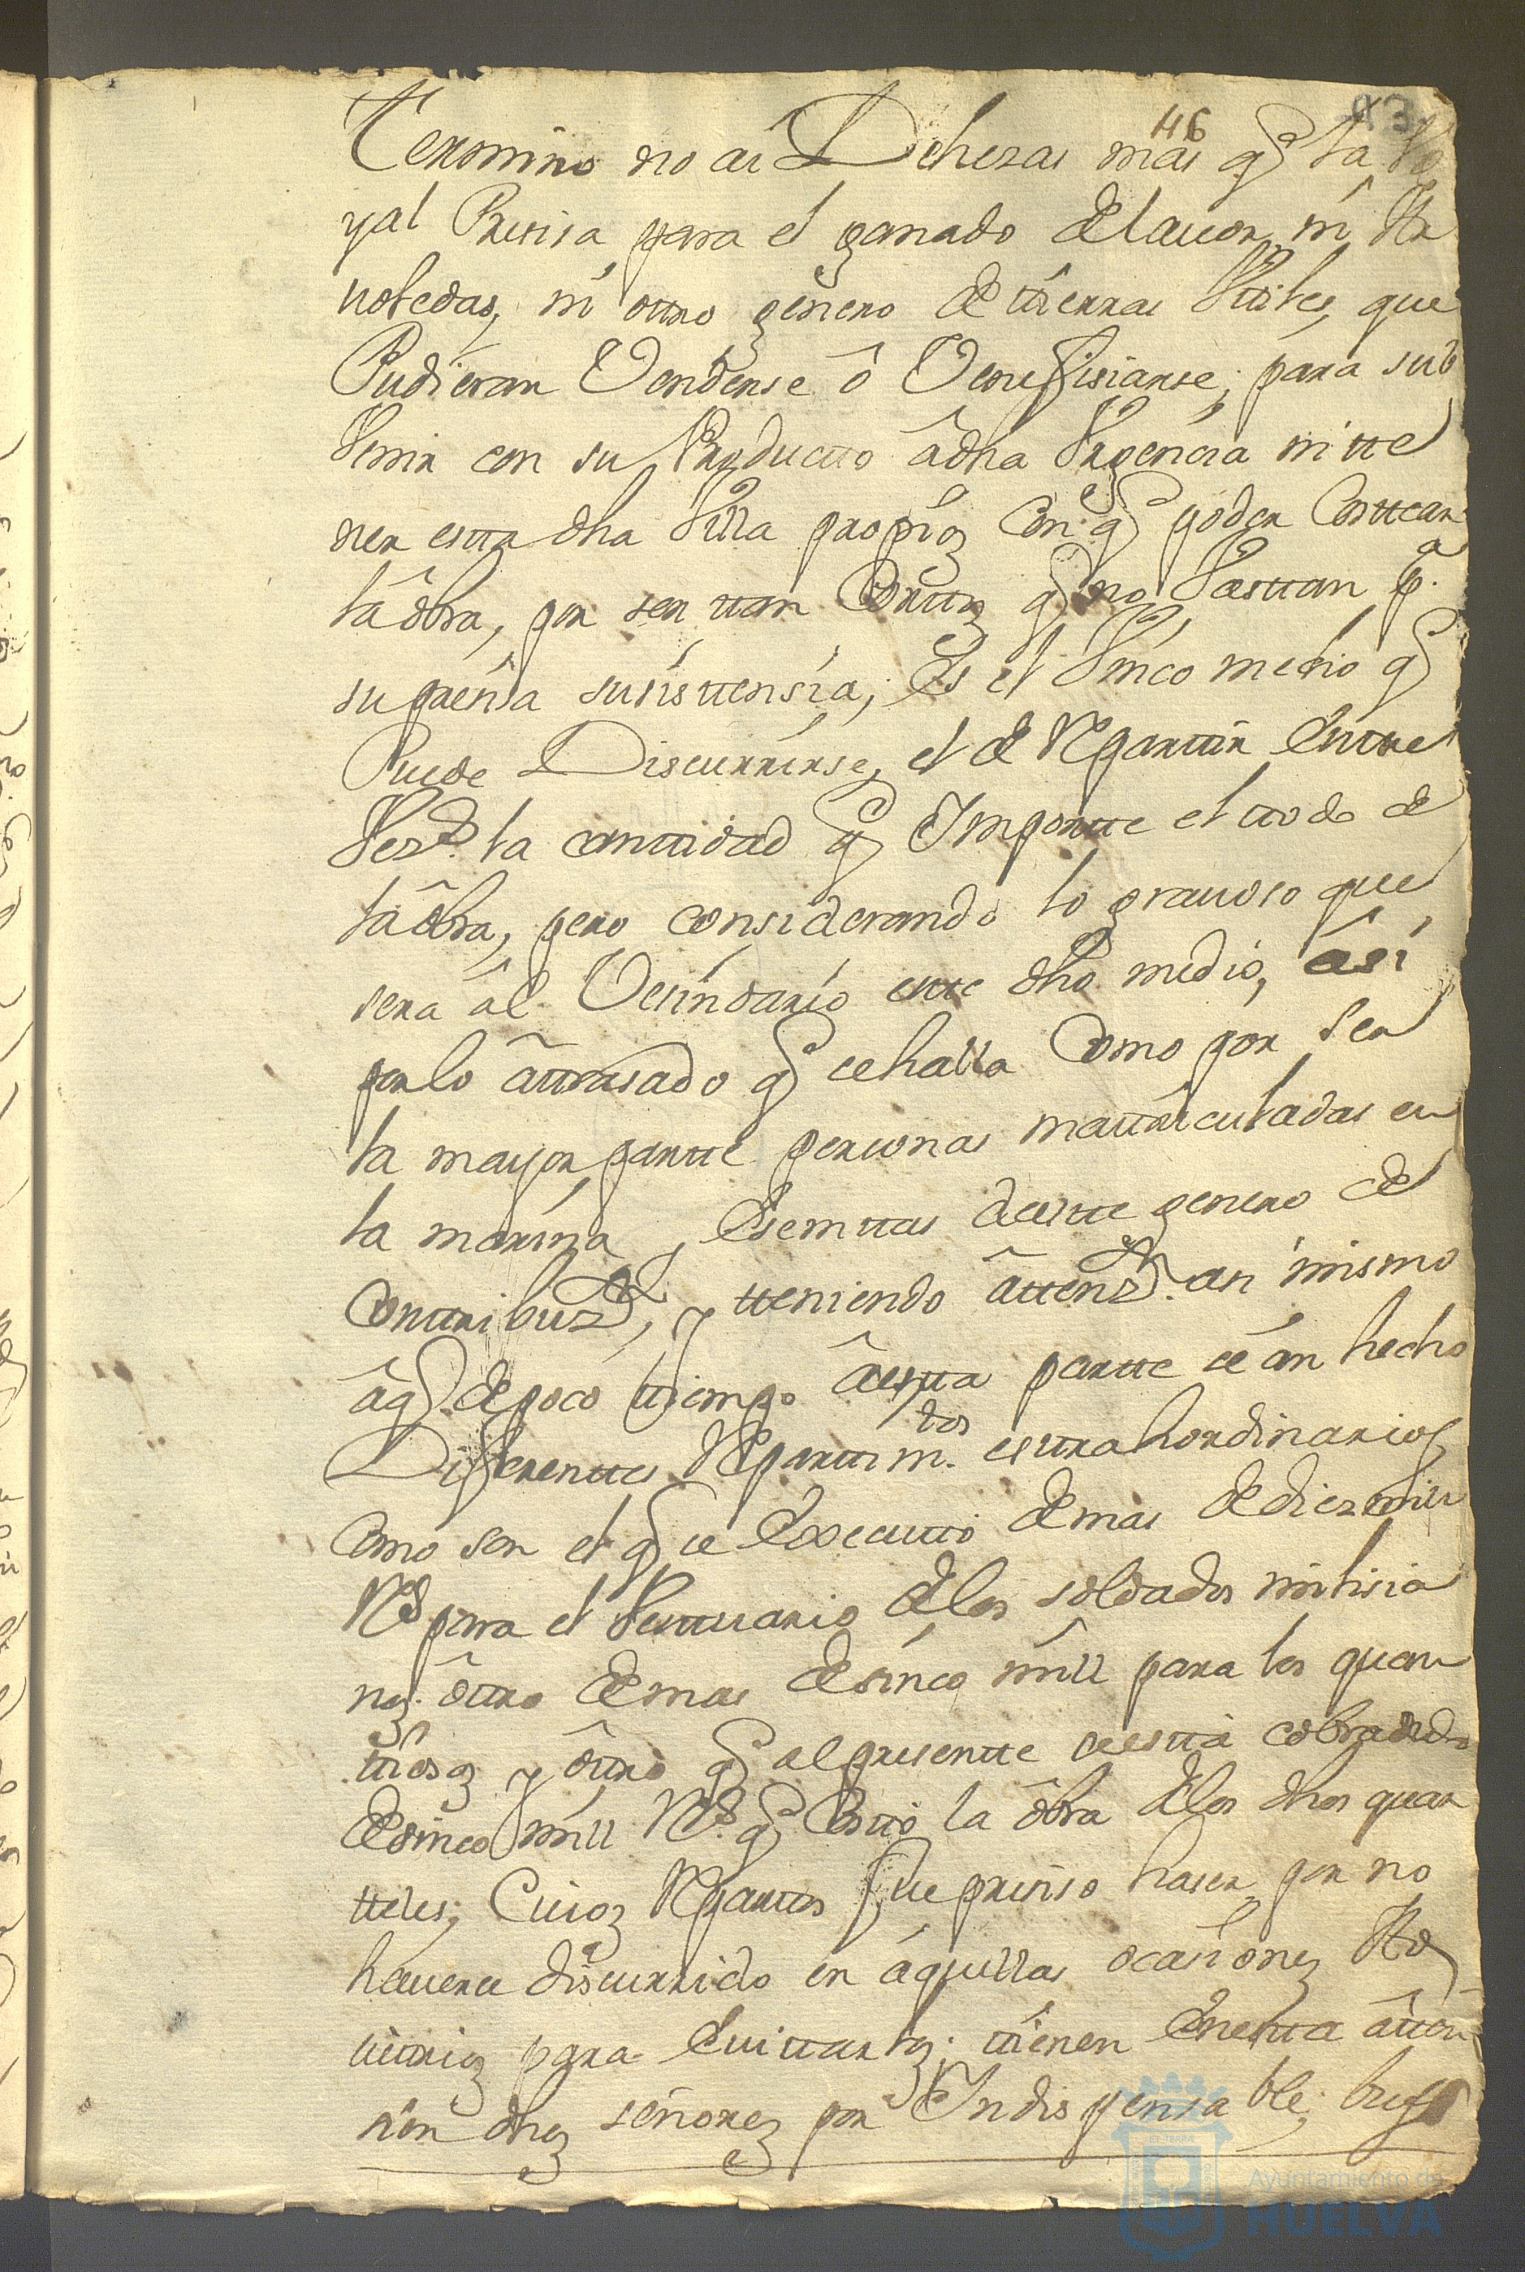 46
93
Termino no ai Dehezas mas q̃ la Vo
yal Presisa para el ganado de lavor ni Ar
voledas, ni ottro genero de tierras Vtiles, que
Pudieran Venderse ô Venefisiarse, para sub
Venir con su Producto âdha Vrgencia ni tte
ner estta dha Villa propios Con q̃ poder Costtear
la ôbra, por ser ttan Corttos q̃ no Vasttan p.ª
su presisa susisttensia; Es el Vnico medio q̃
Puede Discurrirse, el de Reparttir Enttre
Vez.os la canttidad q̃ Importte el ttodo de
la ôbra, pero considerando lo gravoso que
sera âl Vesindario estte dho medio, âsi
por lo âttrasado q̃ ce halla Como por ser
la mayor partte personas mattriculadas en
la marina, Esemttas de estte genero de
Conttribuz.on, y tteniendo âttenz.on asi mismo
âq̃ de poco ttiempo âestta partte ce án hecho
Diferenttes Reparttim.tos esttrahordinarios
Como son el q̃ ce Executto de mas de diez mill
R.s para el Vesttuario de los soldados milisia
nos. ôttro de mas de sinco mill para los quan
ttiosos y ôttro q̃ al presentte ce estta cobrando
de sinco mill R.s q̃ Costto la ôbra de los dhos quar
tteles; Cuios Reparttos fue presiso haser por no
haverse discurrido en áquellas ocasiones Ar
vittrios para Evittarlos; ttienen En estta âtten
sion dhos señores por Indispensable,
Ayuntamiento de
HUELVA